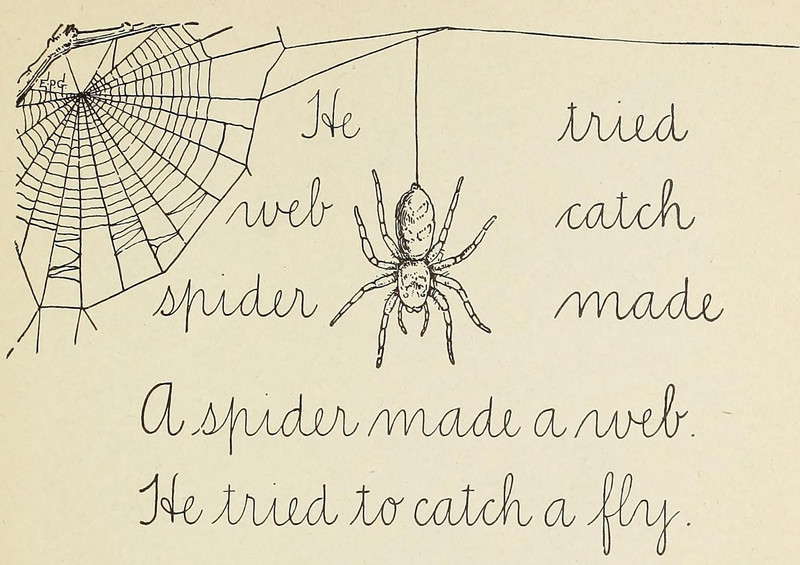 E.P.G.
He tried
web catch
spider made
A spider made a web.
He tried to catch a fly.